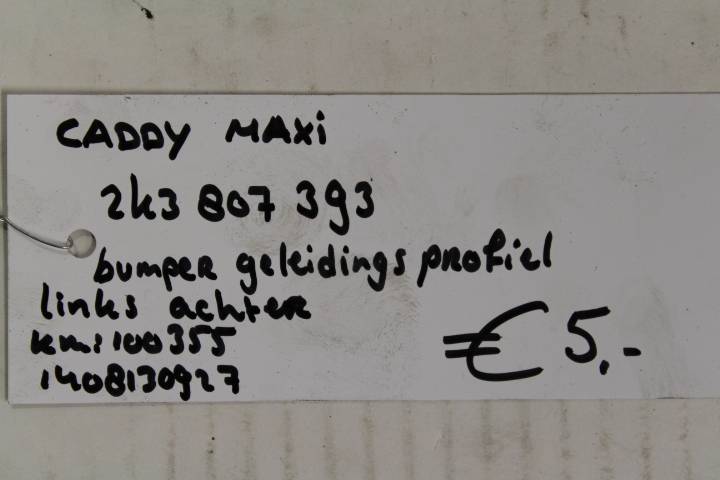 CADDY MAXi
2K3 807 393
bumper geleidings profiel
links achter
km: 100355
1408130927
€ 5,-